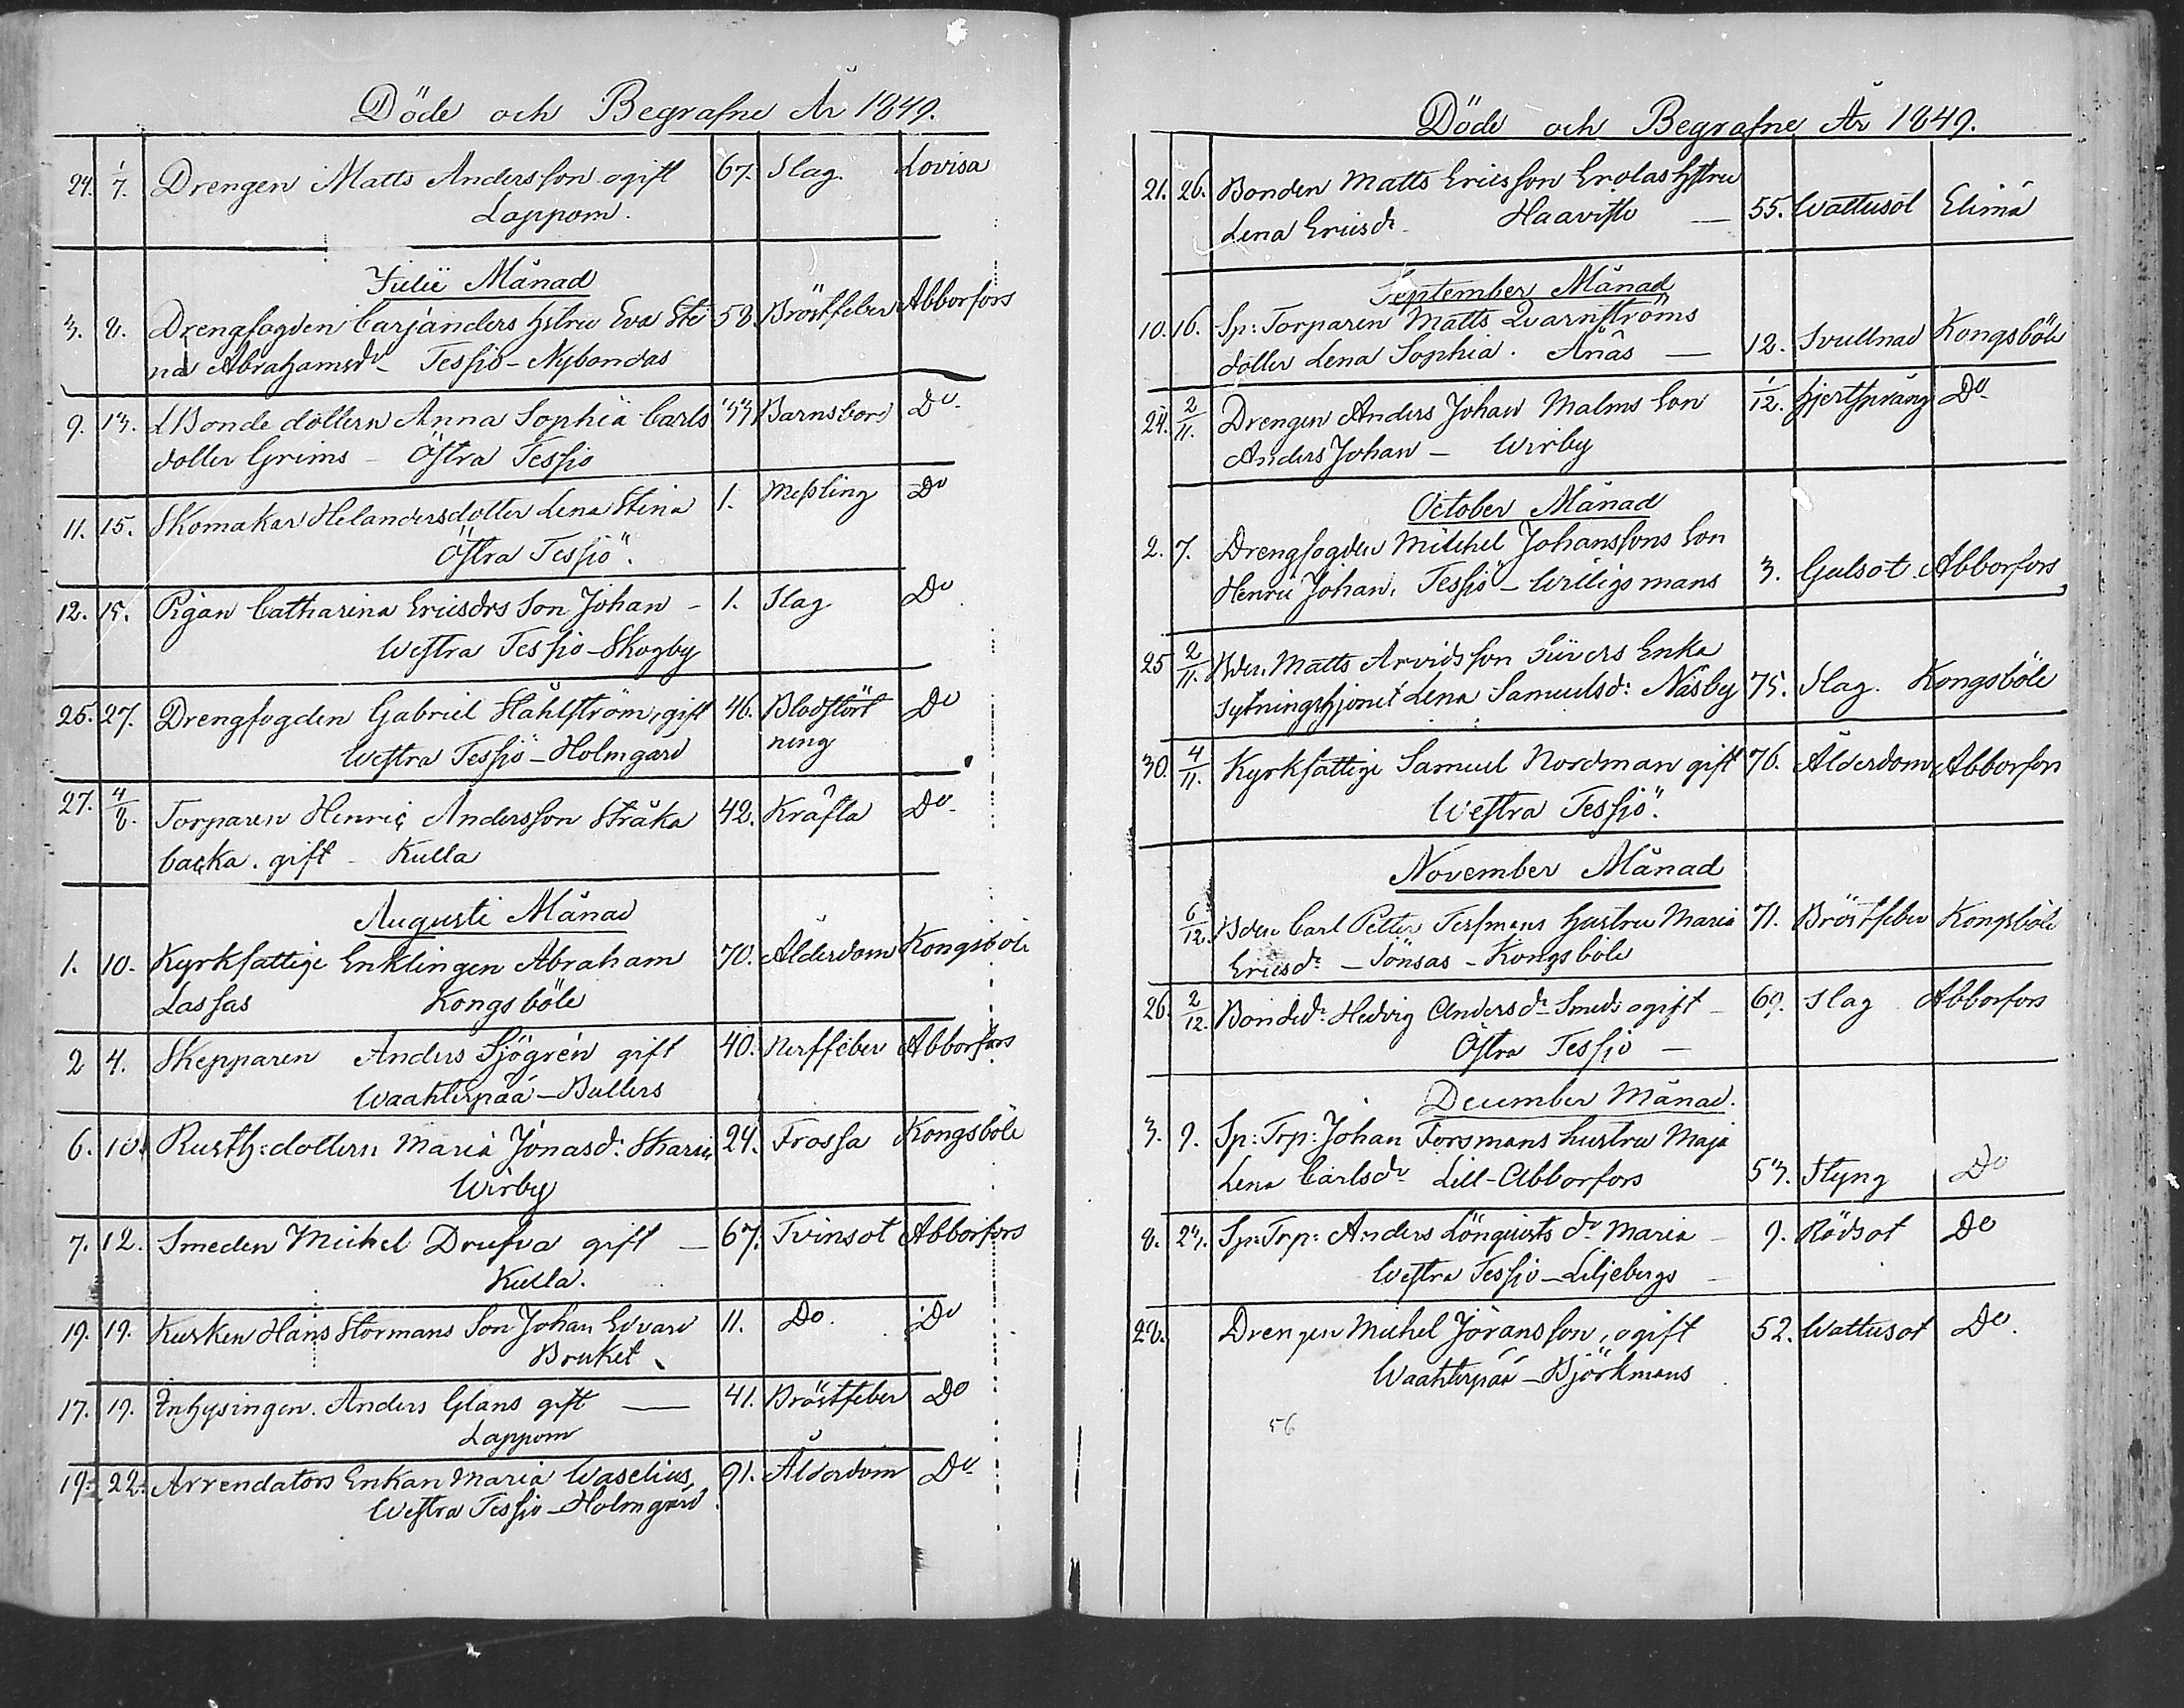 Döde och Begrafne År 1849.
24. 1/7. Drengen Matts Andersson ogift 67. Slag. Lovisa
Lappom.
Julii Månad
3. 8. Drengfogden Carjanders hstru Eva Sti 58 Bröstfeber Abborfors
na Abrahamsdr Tessjö - Nybondas
9. 13. LBonde dottern Anna Sophia Carls 33 Barnsbörd Do
dotter Grims - Östra Tessjö
11. 15. Skomakar Helanders dotter Lena Stina 1. Messling Do
Östra Tessjö.
12. 15. Pigan Catharina Ericsdrs Son Johan - 1. Slag Do
Westra Tessjö - Skogby
25. 27. Drengfogden Gabriel Ståhlström, gift 46. Blodstört Do
Westra Tessjö - Holmgård ning
27. 4/8. Torparen Henric Andersson Stråka 42. Kräfta Do
backa. gift - Kulla
Augusti Månad
1. 10. Kyrkfattige Enklingen Abraham 70. Ålderdom Kongsböle
Lassas Kongsböle
2 4. Skepparen Anders Sjögrén gift 40. Nerffeber Abborfors
Waahterpää - Bullers
6. 10. Rusth: dottern Maria Jonasd: 24. Frossa Kongsböle
Wirby
7. 12. Smeden Michel Drufva gift - 67. Tvinsot Abborfors
Kulla.
19. 19. Kusken Hans Stormans Son Johan Edvard 11. Do. Do
Bruket
17. 19. Inhysingen. Anders Glans gift - 41. Bröstfeber Do
Lappom
19. 22. Arrendators Enkan Maria Waselius 91. Ålderdom Do
Westra Tessjö - Holmgård
Döde och Begrafne År 1849.
21. 26. Bonden Matts Ericsson Erolas hstru
Lena Ericsdr Haavisto - 55. Wattusot Elimä
September Månad
10. 16. Sp: Torparen Matts Qvarnströms
dotter Lena Sophia. Anäs - 12. Svullnad Kongsböle
24. 2/11. Drengen Anders Johan Malms Son 1/12. hjertsprång Do
Anders Johan - Wirby
October Månad
2. 7. Drengfogden Michel Johanssons Son
Henric Johan, Tessjö - Willigsmans 3. Gulsot Abborfors
25 2/11. Bden. Matts Arvidsson Siivers Enka
Sytningshjonet Lena Samuelsd: Näsby 75. Slag. Kongsböle
30. 4/11. Kyrkfattige Samuel Nordman gift 76. Ålderdom Abborfors
Westra Tessjö.
November Månad
6/12. Bden Carl Petter Tessmans hustru Maria 71. Bröstfeber Kongsböle
Ericsdr - Jönsas - Kongsböle
26. 2/12. Bonded: Hedvig Andersdr Smeds ogift - 69. Slag Abborfors
Östra Tessjö -
December Månad.
3. 9. Sp: Trp: Johan Forsmans hustru Maja
Lena Carlsdr Lill-Abborfors 53. Styng Do
8. 23. Sp: Trp: Anders Lönqvists dr Maria - 9. Rödsot Do
Westra Tessjö - Liljebergs -
28. Drengen Michel Göransson, ogift 52. Wattusot Do.
Waahterpää - Björkmans
56